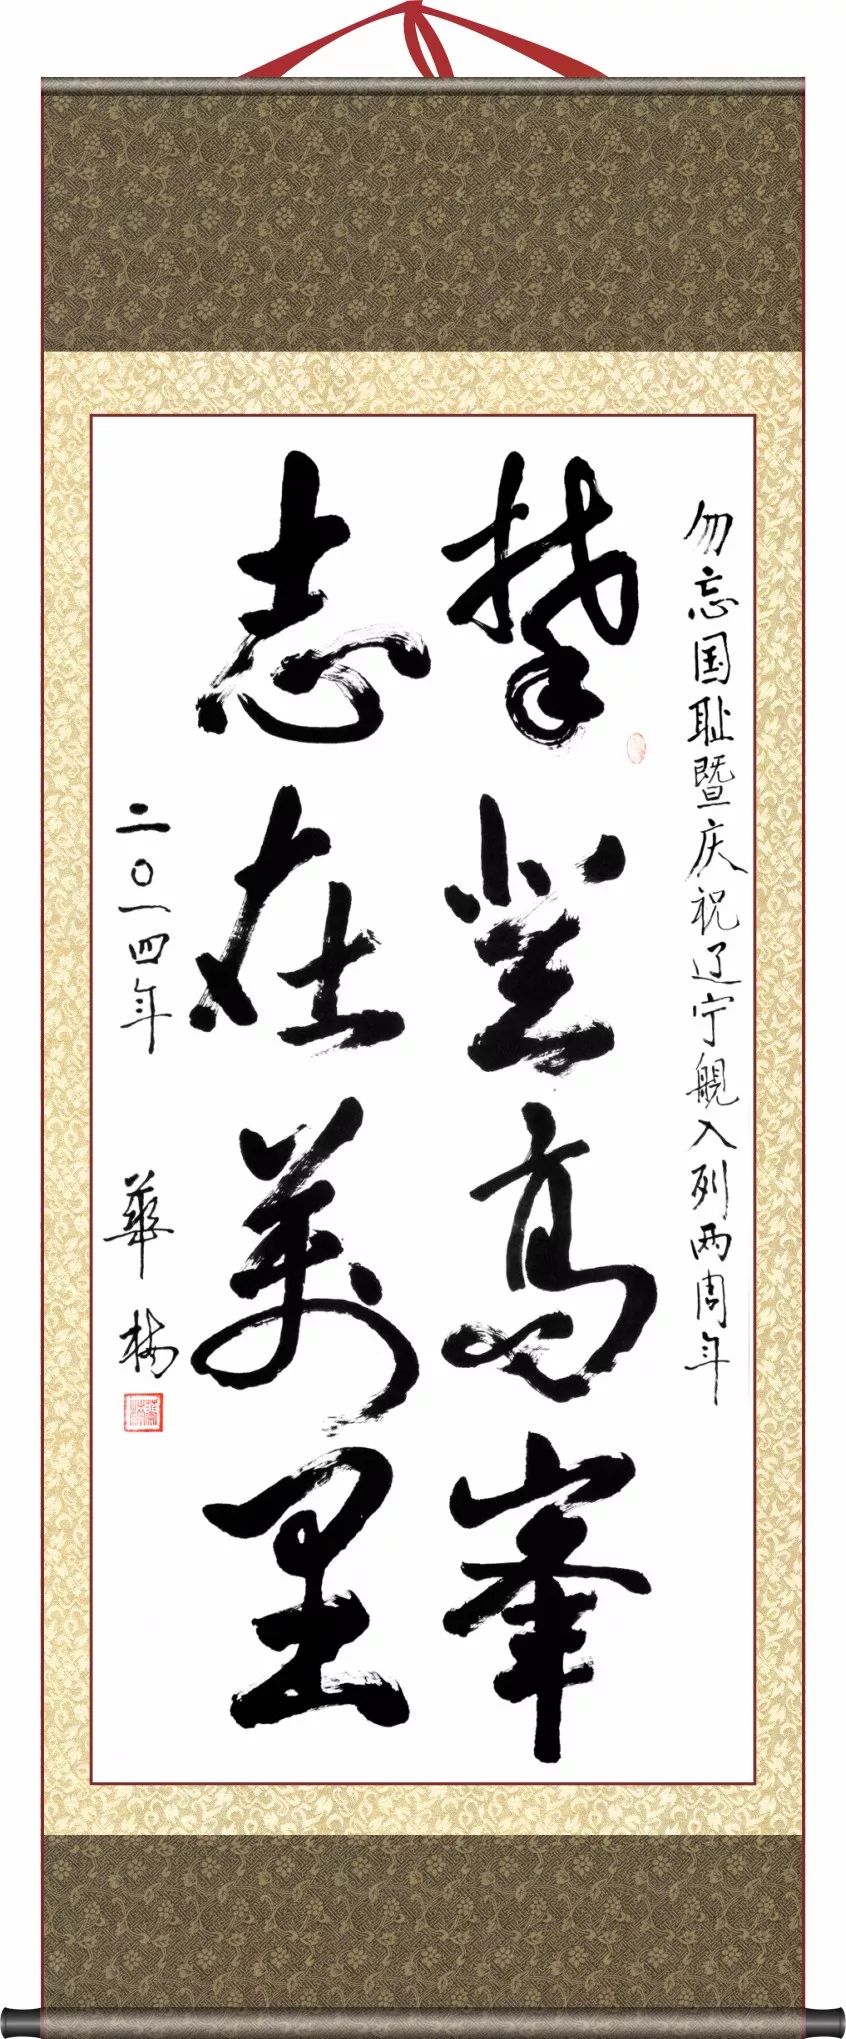 勿忘国耻暨庆祝辽宁舰入列两周年
攀登高峯
志在万里
二〇一四年 華梅